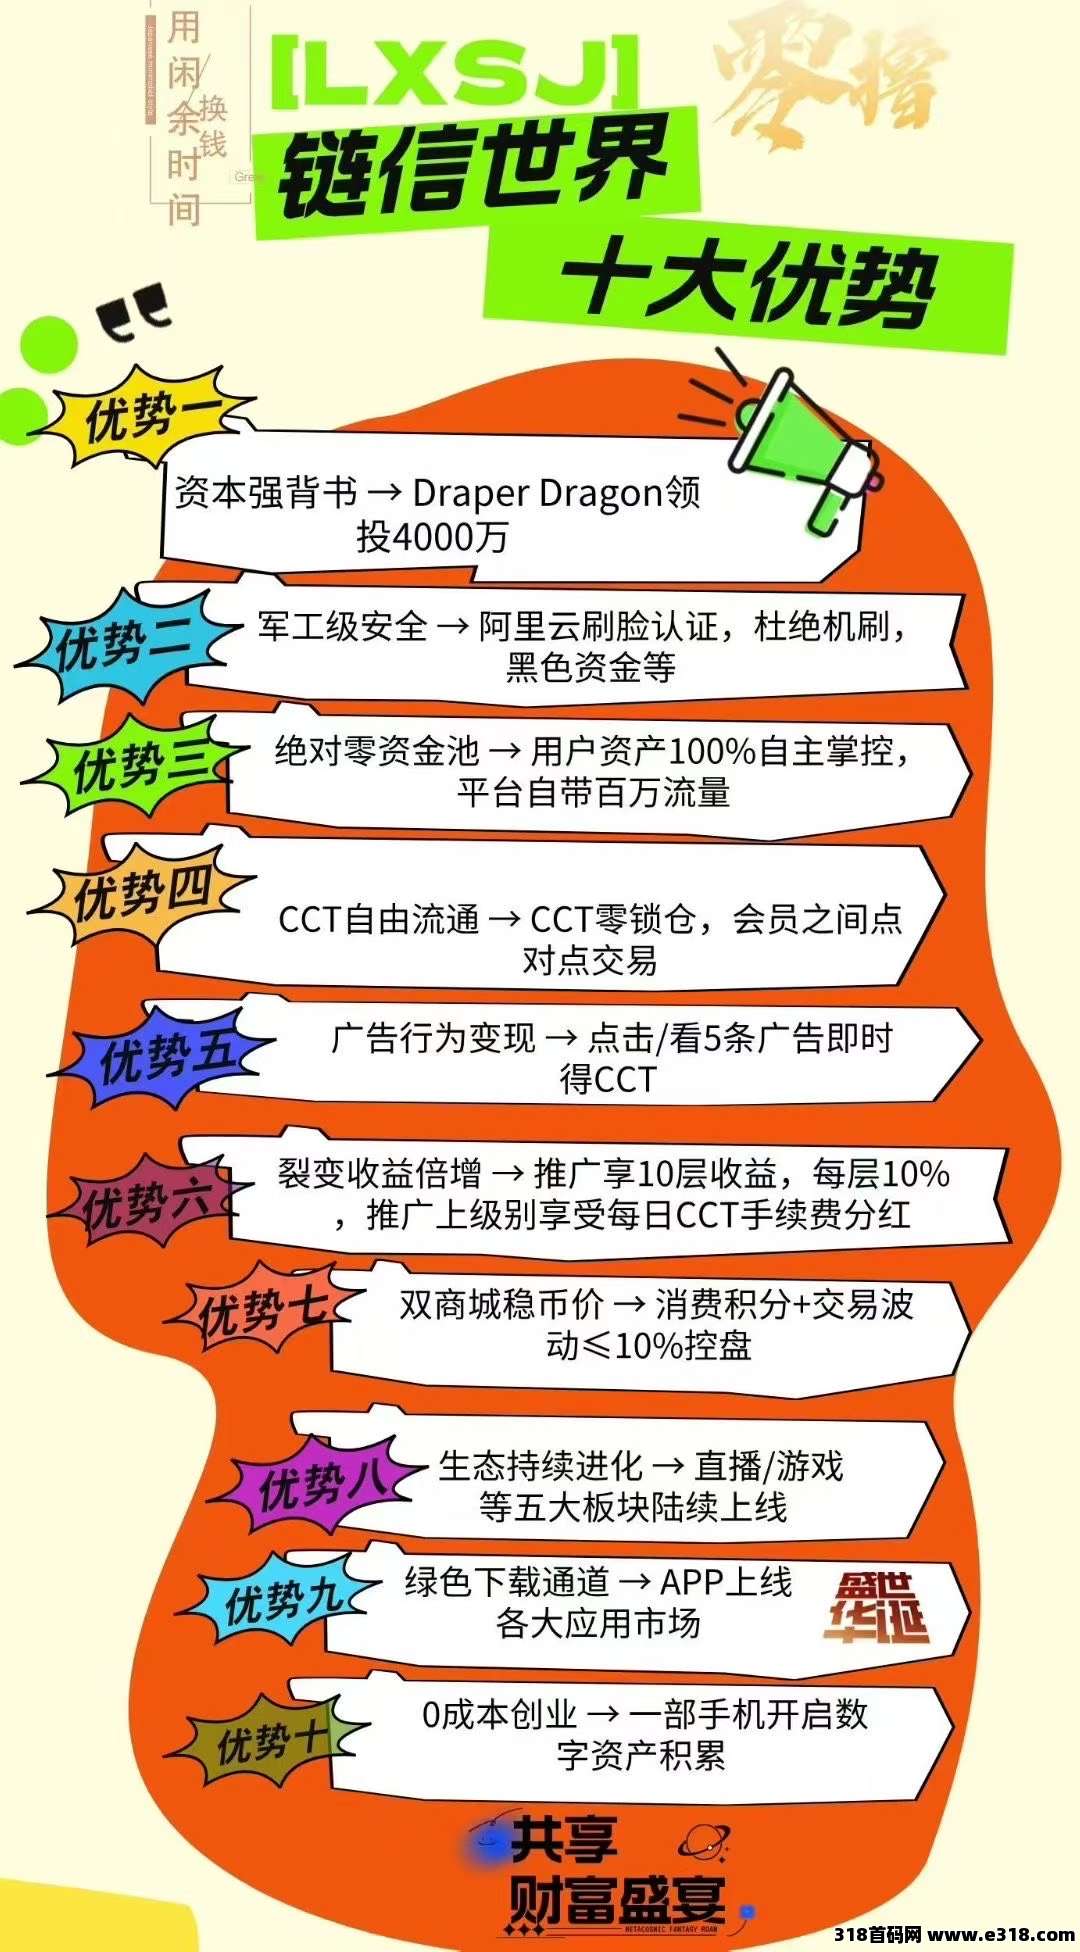 用闲余时间
换钱
Gree
[LXSJ]
零撸
链信世界
十大优势
优势一
资本强背书 → Draper Dragon领
投4000万
优势二
军工级安全 → 阿里云刷脸认证，杜绝机刷，
黑色资金等
优势三
绝对零资金池 → 用户资产100%自主掌控，
平台自带百万流量
优势四
CCT自由流通 → CCT零锁仓，会员之间点
对点交易
优势五
广告行为变现 → 点击/看5条广告即时
得CCT
优势六
裂变收益倍增 → 推广享10层收益，每层10%
，推广上级别享受每日CCT手续费分红
优势七
双商城稳币价 → 消费积分+交易波
动≤10%控盘
优势八
生态持续进化 → 直播/游戏
等五大板块陆续上线
优势九
绿色下载通道 → APP上线
各大应用市场
盛世
华诞
优势十
0成本创业 → 一部手机开启数
字资产积累
共享
财富盛宴
METACOSMIC FANTASY ROAM
318首码网 www.e318.com